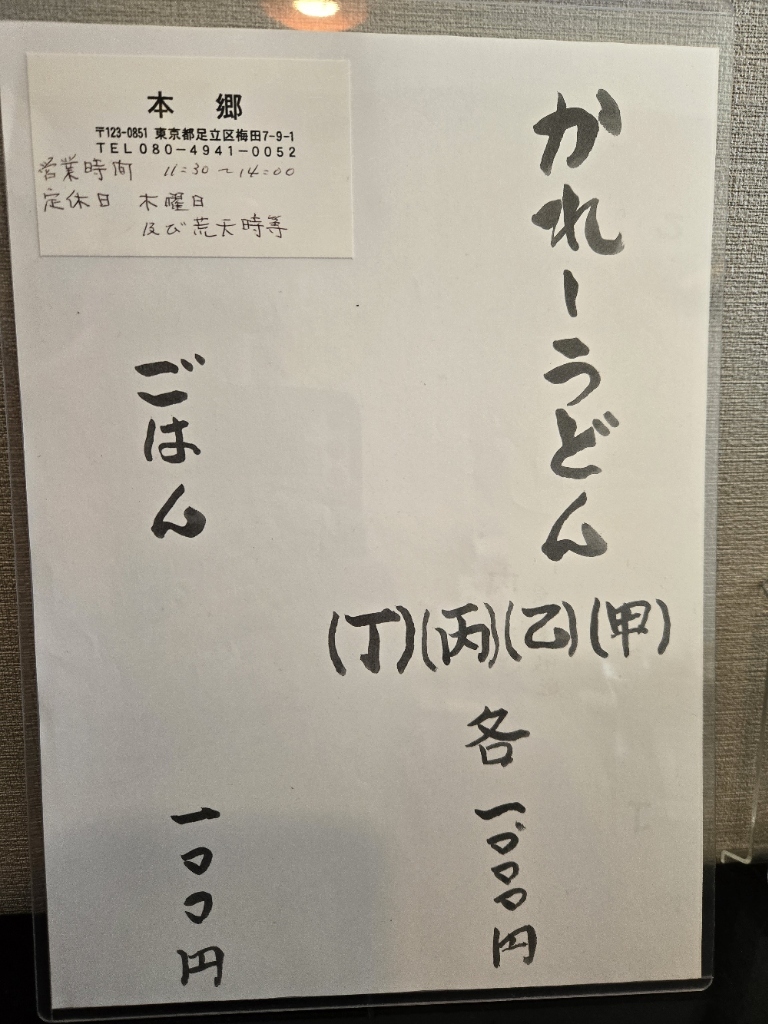 本 郷
〒123-0851 東京都足立区梅田7-9-1
TEL080-4941-0052
営業時間 11:30〜14:00
定休日 木曜日
及び荒天時等
かれーうどん
(甲)
(乙)
(丙)
(丁)
各一〇〇〇円
ごはん
一〇〇円